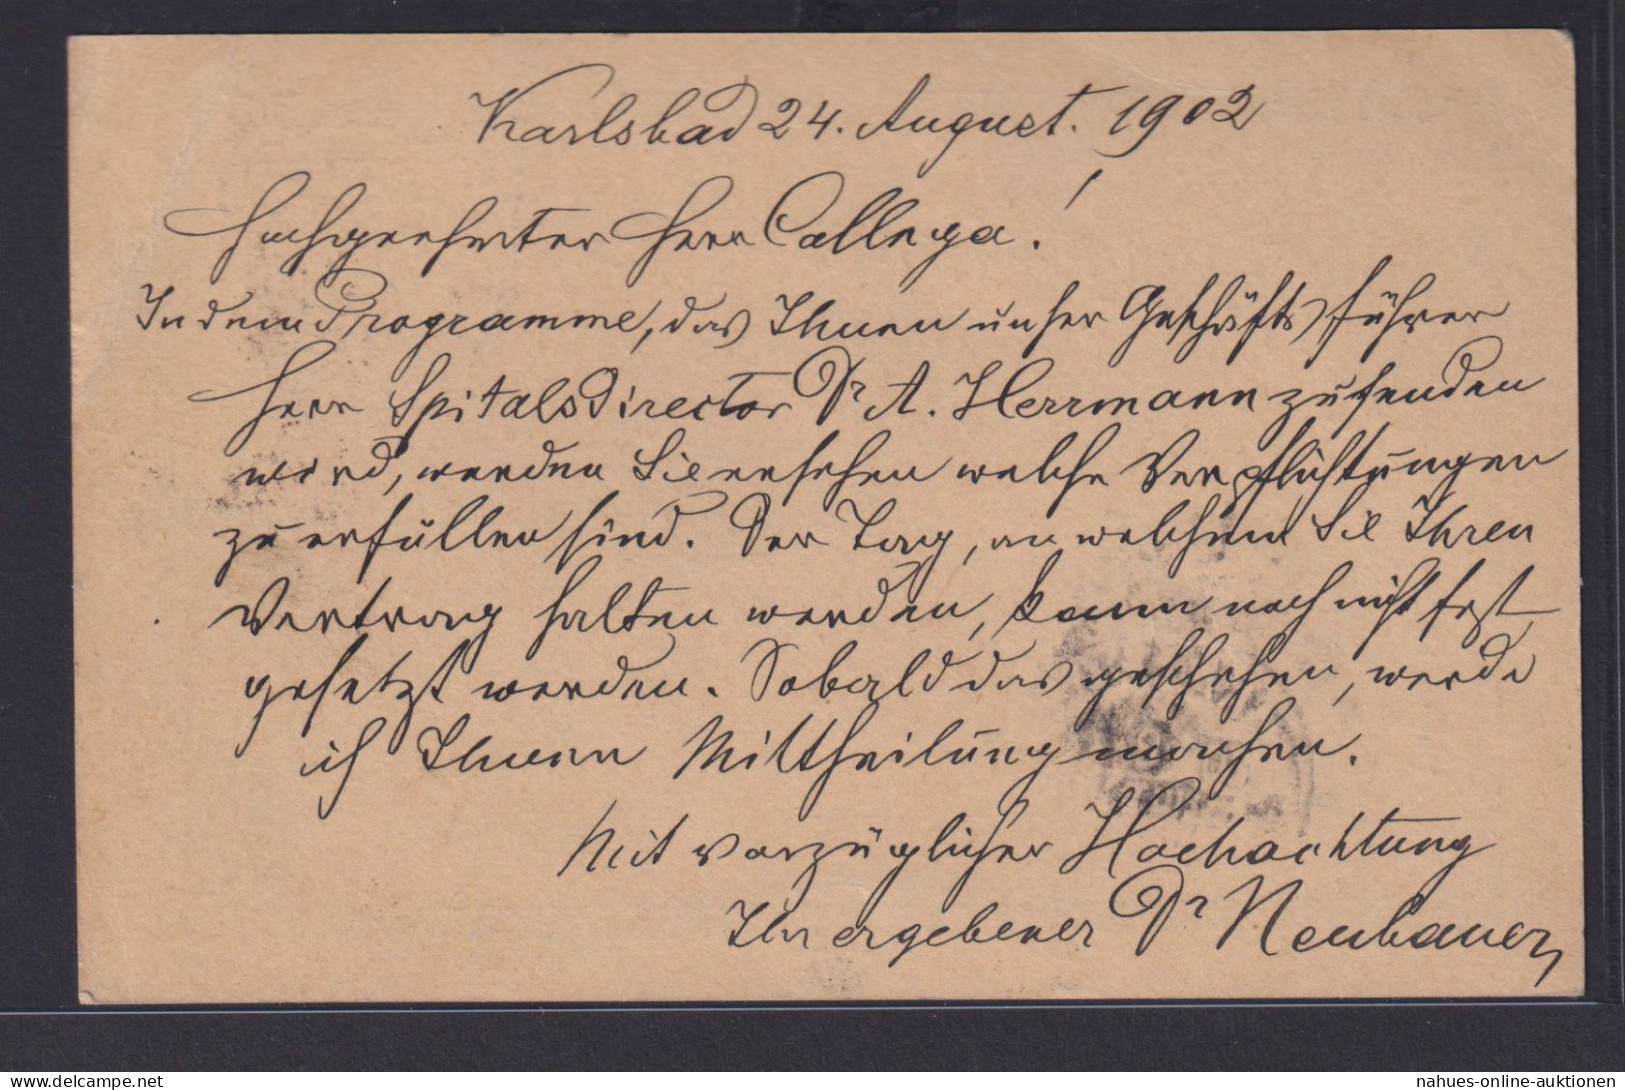 Karlsbad 24. August. 1902
Hochgeehrter Herr College!
In dem Programme, das Ihnen unser Geschäftsführer
Herr Spitalsdirector Dr A. Herrmann zusenden
wird, werden Sie ersehen welche Verpflichtungen
zu erfüllen sind. Der Tag, an welchem Sie Ihren
Vortrag halten werden, kann noch nicht fest
gesetzt werden. Sobald das geschehen, werde
ich Ihnen Mittheilung machen.
Mit vorzüglicher Hochachtung
Ihr ergebener Dr Neubauer
nahues-online-auktionen